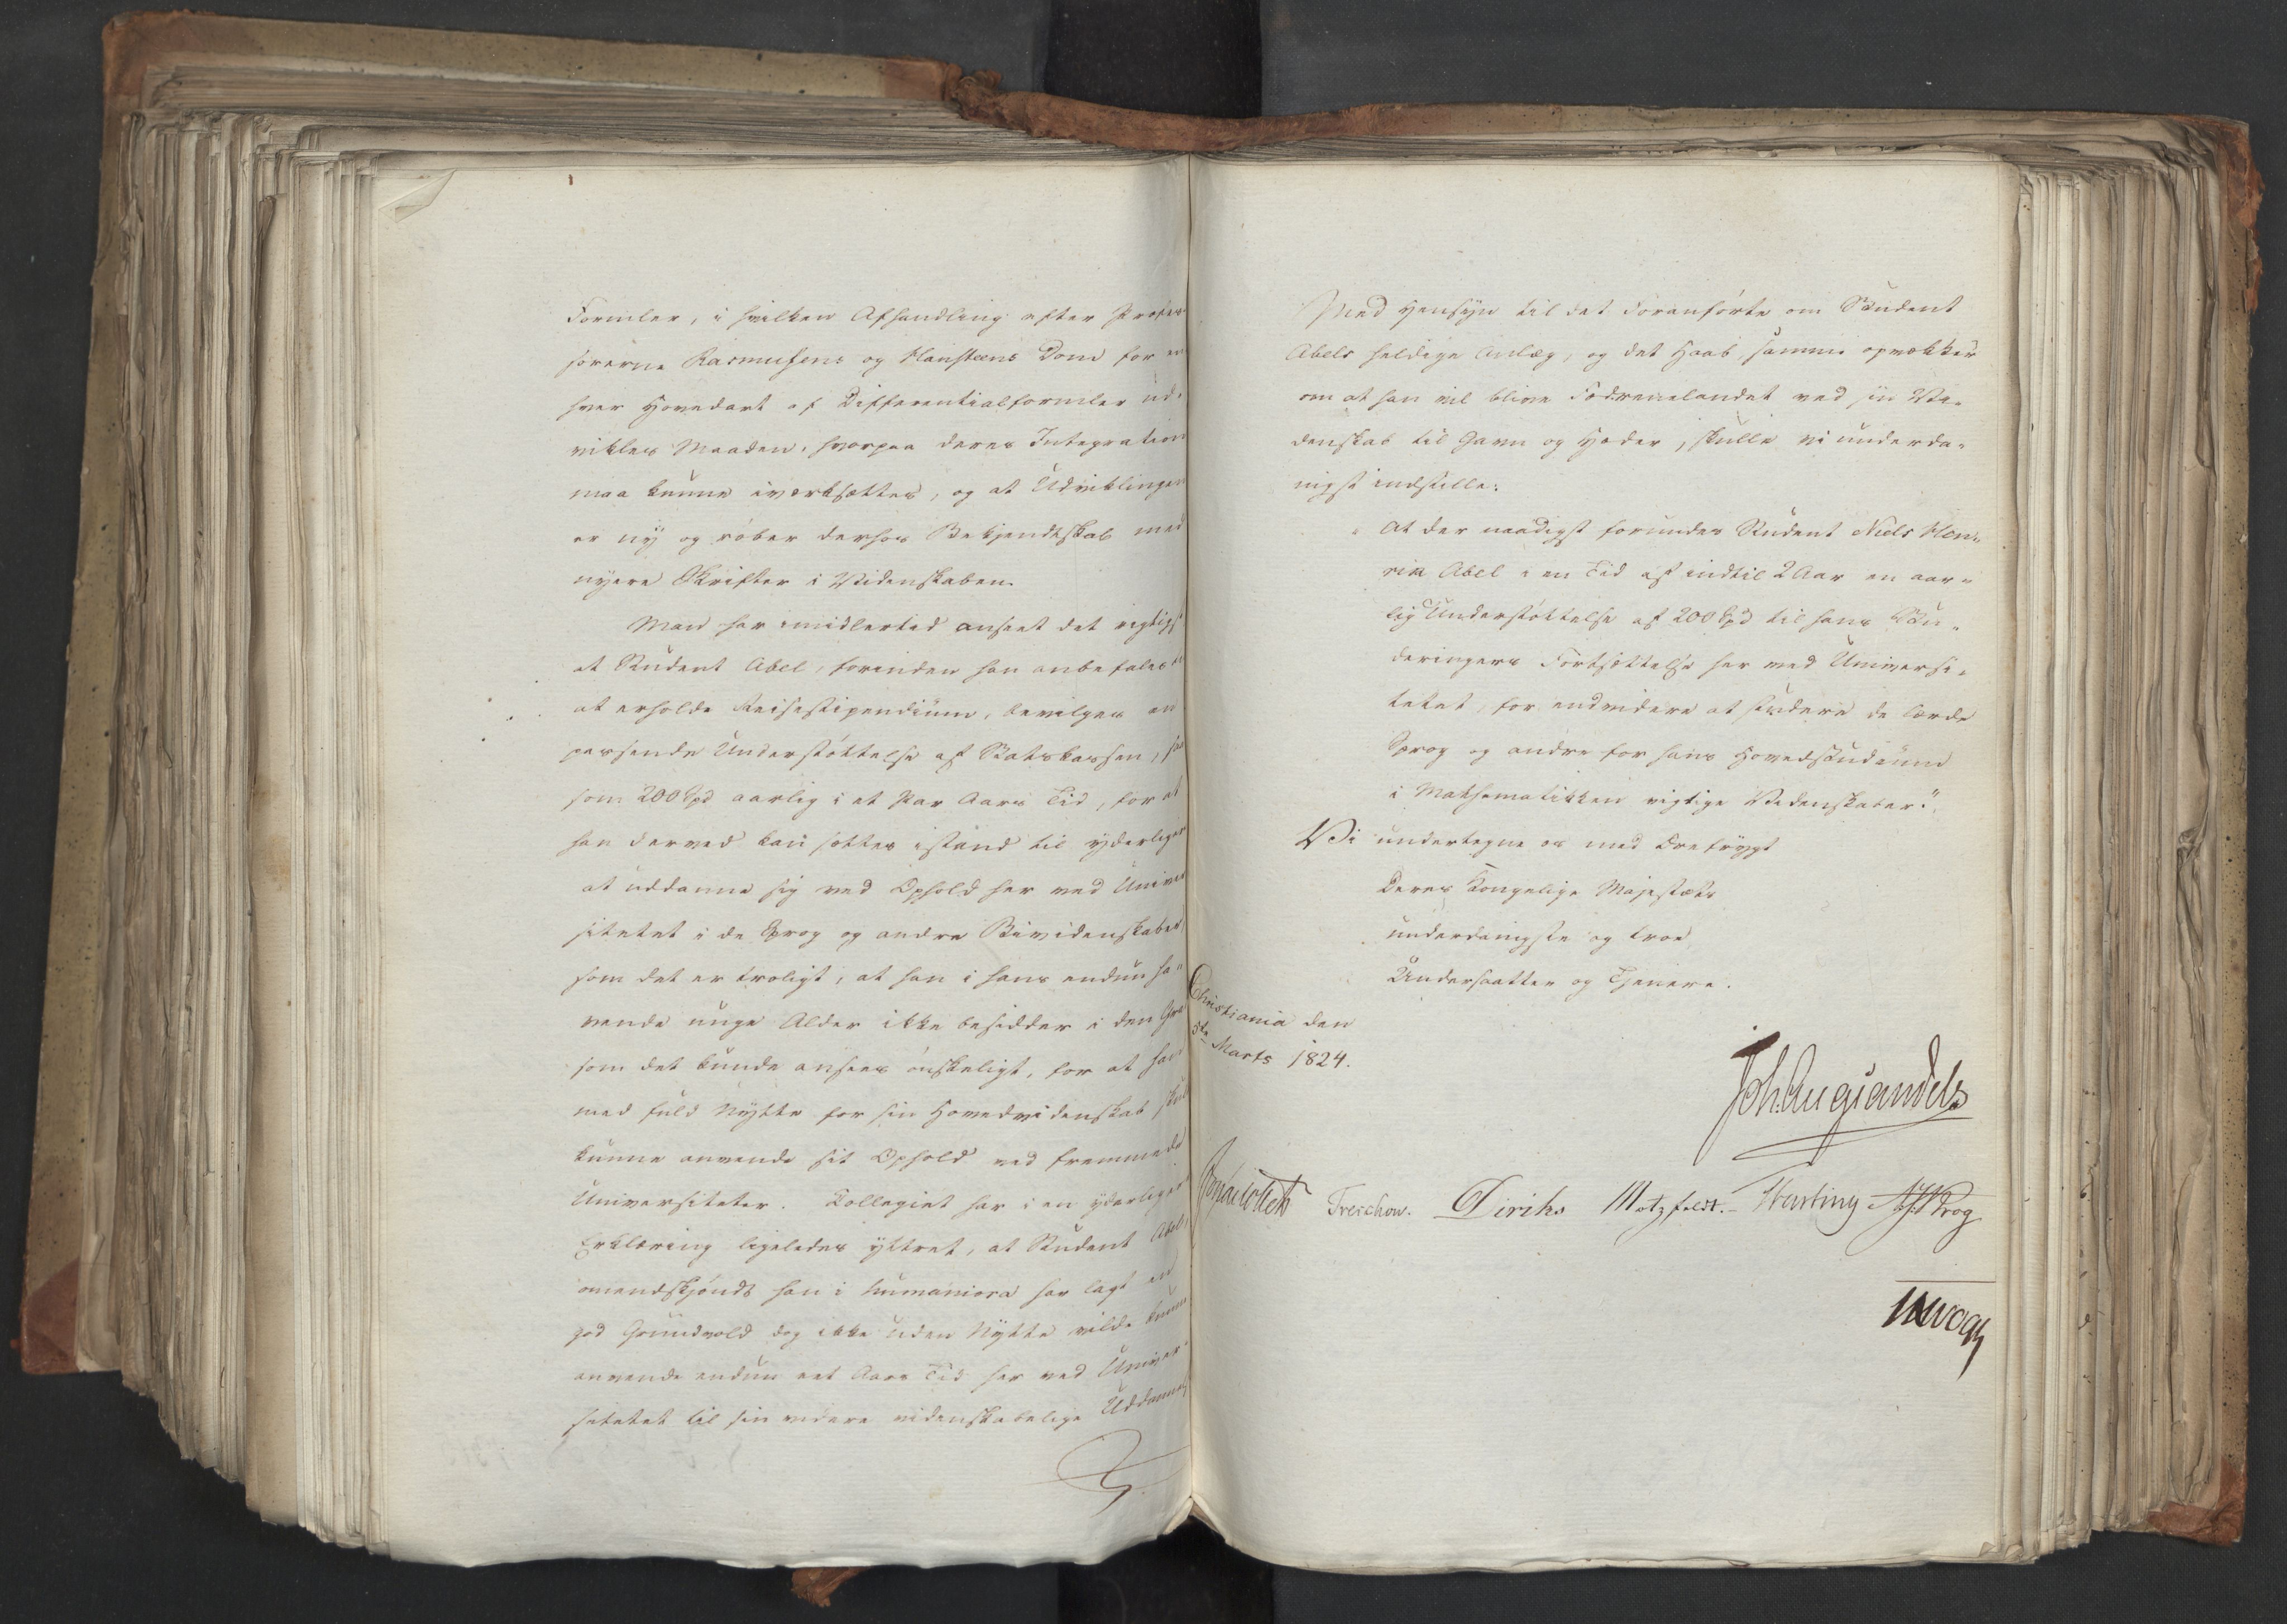 Formler, i hvilken Afhandling efter Profes
sorerne Rasmusens og Hansteens Dom for en
hver Hovedart af Differentialformler ud-
vikles Maaden, hvorpaa deres Integration
maa kunne iværksættes, og at Udviklingen
er ny og røber derhos Bekjendtskab med
nyere Skrifter i Videnskaben.
Man har imidlertid anseet det rigtigst
at Student Abel, forinden han anbefales til
at erholde Reisestipendium, bevilges en
passende Understøttelse af Statskassen, saa
som 200 Spd aarlig i et Par Aars Tid, for at
han derved kan sættes istand til yderligere
at uddanne sig ved Ophold her ved Univer
sitetet i de Sprog og andre Bividenskaber
som det er troligt, at han i hans endnu ha-
vende unge Alder ikke besidder i den Grad
som det kunde ansees ønskeligt, for at han
med fuld Nytte for sin Hovedvidenskab skul
kunne anvende sit Ophold ved fremmede
Universiteter. Collegiet har i en yderligere
Erklæring ligeledes yttret, at Student Abel,
omendskjøndt han i humaniora har lagt en
god Grundvold dog ikke uden Nytte vilde kunne
anvende endnu eet Aars Tid her ved Univer-
sitetet til sin videre videnskabelige Uddannelse
Med Hensyn til det Foranførte om Student
Abels heldige Anlæg, og det Haab, samme opvækker
om at han vil blive Fædrenelandet ved sin Vi-
denskab til Gavn og Hæder, skulle vi underda-
nigst indstille:
"At der naadigst forundes Student Niels Hen-
rik Abel i en Tid af indtil 2 Aar en aar-
lig Understøttelse af 200 Spd til hans Stu-
deringers Fortsættelse her ved Universi-
tetet, for endvidere at studere de lærde
Sprog og andre for hans Hovedstudium
i Mathematikken vigtige Videnskaber."
Vi undertegne os med Ærefrygt
Deres Kongelige Majestæts
underdanigste og troe
Undersaatter og Tjenere.
Christiania den
5te Marts 1824.
Joh. Aug. Sandels
Treschow. Diriks Motzfeldt. Krog